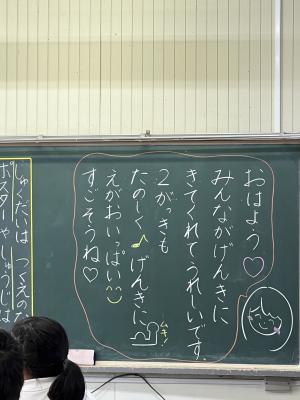 おはよう♡
みんながげんきに
きてくれてうれしいです。
2がっきも
たのしく♪げんきに
ムキッ!
えがおいっぱい
すごそうね♡
しゅくだいは つくえのな
ポスターや しゅうじは